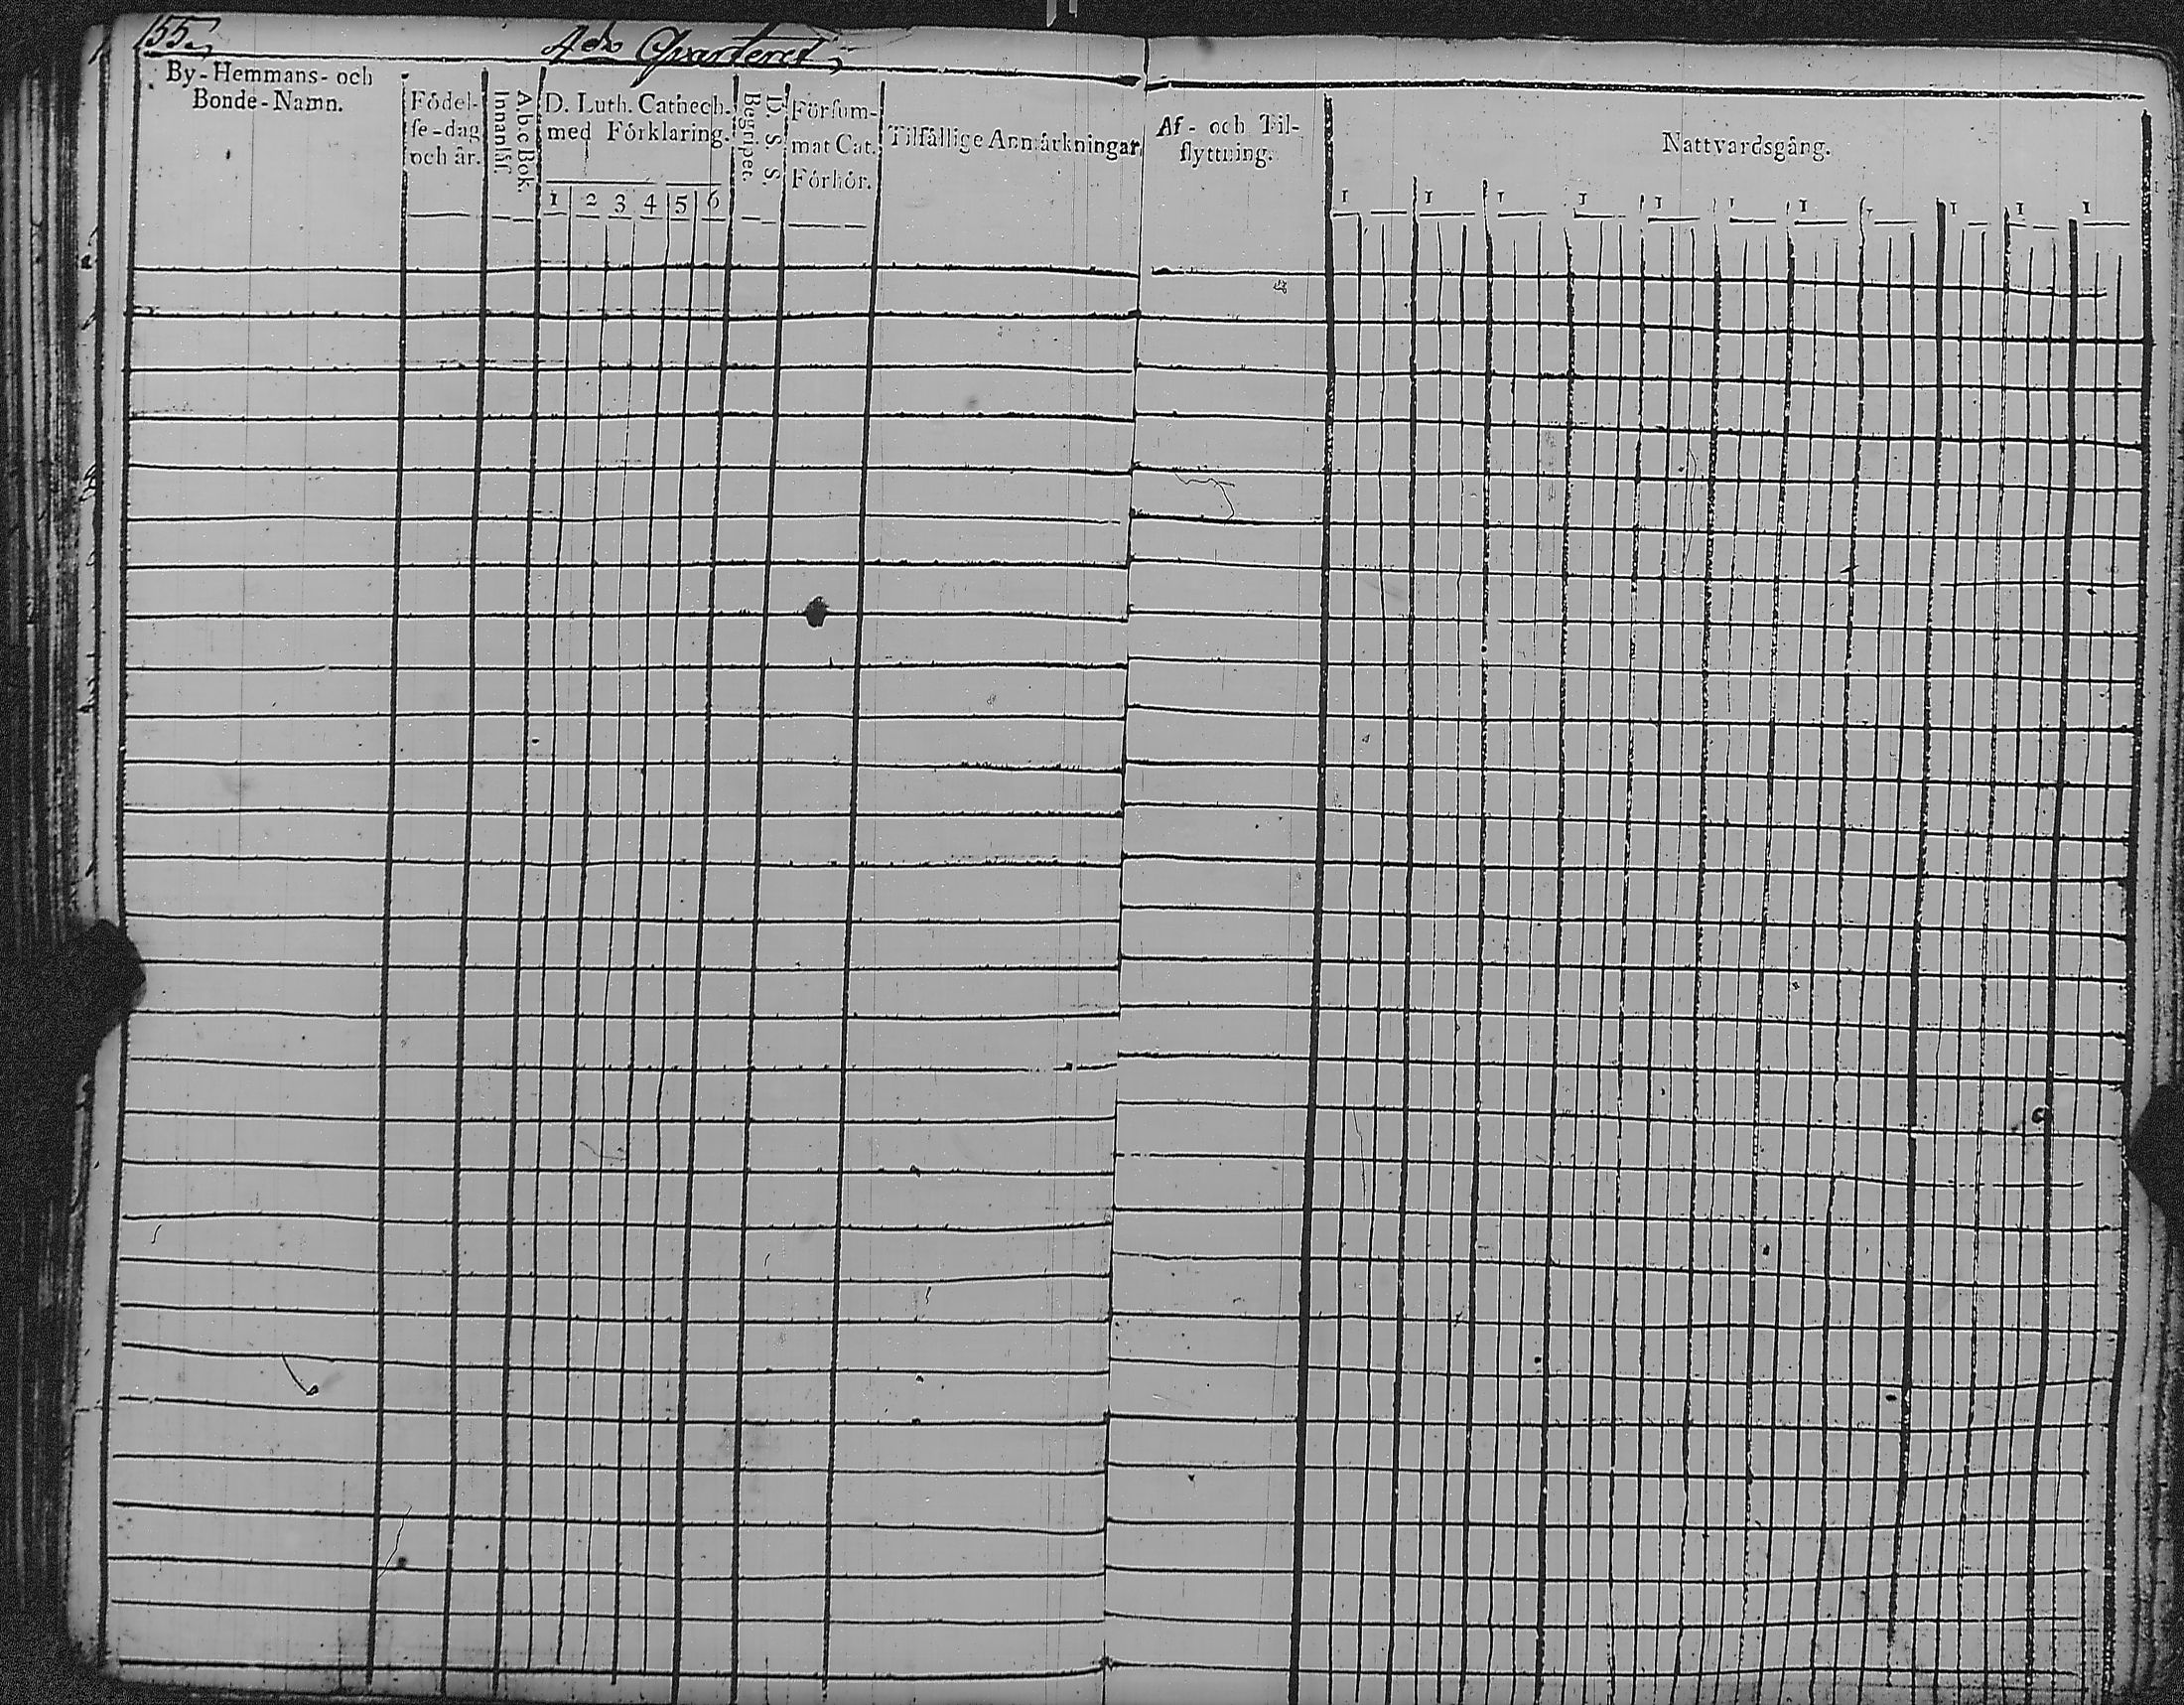 155.
4de Qvarteret,
By-Hemmans- och
Bonde-Namn.
Fôdel-
se-dag
och år.
Innanläs.
Abc Bok.
D. Luth. Cathech.
med Fôrklaring.
1 2 3 4 5 6
Begriper.
D. S. S.
Fôrsum-
mat Cat.
Fôrhôr.
Tilfällige Anmärkningar.
Af- och Til-
flyttning.
Nattvardsgång.
1 1 1 1 1 1 1 1 1 1 1